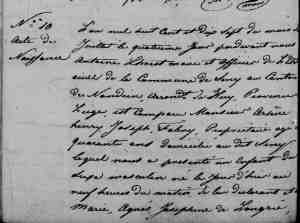 N.º 18
Acte de
Naissance
L'an mil huit Cent et dix sept du mois de
Juillet le quatrieme Jour pardevant nous
Antoine maire et officier de l'Etat
civile de la Commune de Seny au Canton
de Nandrin, Arrond. de Huy, Province
Liege, est Comparu Monsieur
henry Joseph Proprietaire agé
quarante ans domicilié au dit Seny
lequel nous a presenté un enfant du
sexe masculin né le jour d'hier au
neuf heures du matin, de lui declarant et
Marie, Agnès Josephine de